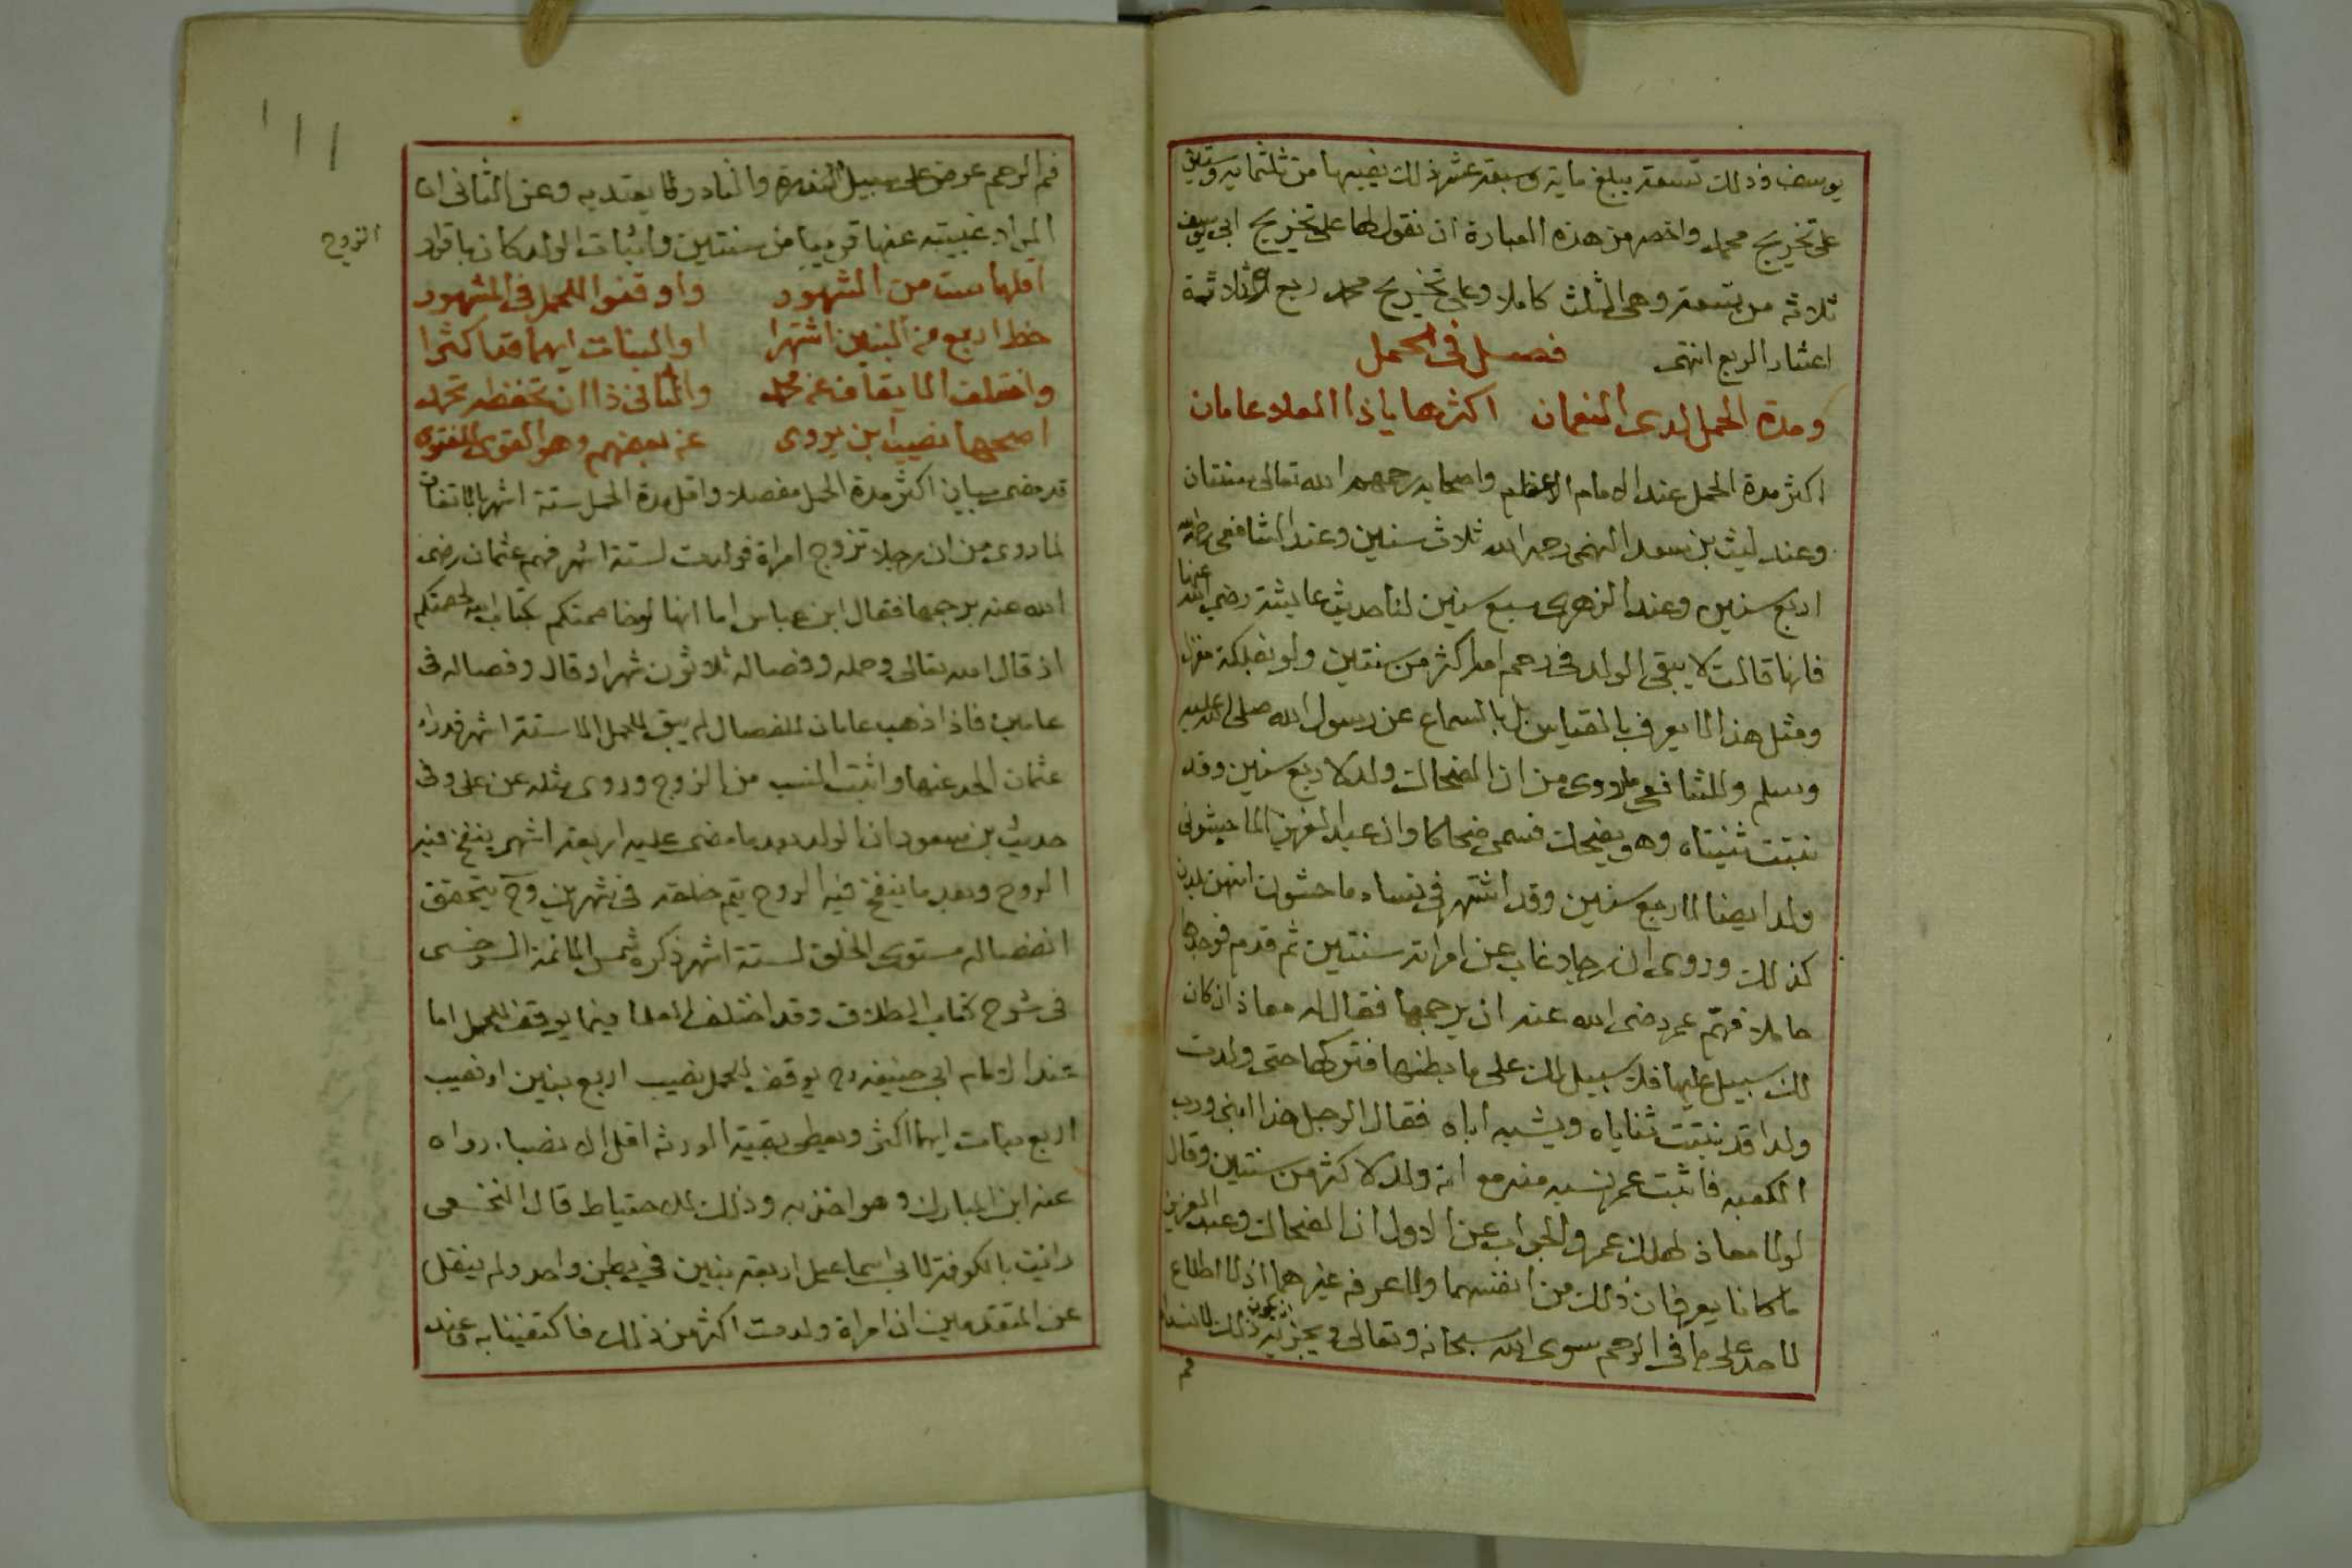 يوسف وذلك تسعة يبلغ ماية وسبعة عشر ذلك نصيبها من ثلثماية وستين
على تخريج محمد واخصر من هذه العبارة ان نقول لها على تخريج ابي يوسف
ثلاثة من تسعة وهي الثلث كاملا وعلى تخريج محمد ربع وثلاثة
اعشار الربع انتهى فصل في الحمل
ومدة الحمل لدى النعمان اكثرها ياذا العلا عامان
اكثر مدة الحمل عند الامام الاعظم واصحابه رحمهم الله تعالى سنتان
وعند ليث بن سعد الفهمي رحمه الله ثلاث سنين وعند الشافعي رحمه الله
اربع سنين وعند الزهري سبع سنين لنا حديث عايشة رضي الله عنها
فانها قالت لا يبقى الولد في رحم امه اكثر من سنتين ولو بفلكة مغزل
ومثل هذا لا يعرف بالقياس بل بالسماع عن رسول الله صلى الله عليه
وسلم وللشافعي ما روي من ان الضحاك ولد لاربع سنين وقد
نبتت ثنيتاه وهو يضحك فسمي ضحاكا وان عبد العزيز الماجشوني
ولد ايضا لاربع سنين وقد اشتهر في نساء ماجشون انهن يلدن
كذلك وروي ان رجلا غاب عن امراته سنتين ثم قدم فوجدها
حاملا فهمّ عمر رضي الله عنه ان يرجمها فقال له معاذ ان كان
لك سبيل عليها فلا سبيل لك على ما بطنها فتركها حتى ولدت
ولدا قد نبتت ثناياه ويشبه اباه فقال الرجل هذا ابني ورب
الكعبه فاثبت عمر نسبه منه مع انه ولد لاكثر من سنتين وقال
لولا معاذ لهلك عمر والجواب عن الاول ان الضحاك وعبد العزيز
ما كانا يعرفان ذلك من انفسهما ولا عرفه غيرهما اذ لا اطلاع
لاحد على ما في الرحم سوى الله سبحانه وتعالى ذلك لانسداد
فم
فم الرحم عرض على سبيل الندرة والنادر لا يعتد به وعن الثاني ان
المراد غيبته عنها قريبا من سنتين واثبات الولد كان باقرار
الزوج
اقلها ست من الشهور واوقفوا للحمل في المشهور
حظ اربع من البنين اشتهرا او البنات ايهما قد اكثرا
واختلف الايقاف عن محمد والثاني ذا ان تحفظه تحمد
اصحها نصيب ابن يروى عن بعضهم وهو القوي للفتوى
قد مضى بيان اكثر مدة الحمل مفصلا واقل مدة الحمل ستة اشهر بالاتفاق
لما روي من ان رجلا تزوج امراة فولدت لستة اشهر فهم عثمان رضى
الله عنه برجمها فقال ابن عباس اما انها لو خاصمتكم بكتاب الله لخصمتكم
اذ قال الله تعالى وحمله وفصاله ثلاثون شهرا وقال وفصاله في
عامين فاذا ذهب عامان للفصال لم يبق للحمل الا ستة اشهر فدراء
عثمان الحد عنها واثبت النسب من الزوج وروي مثله عن على وفي
حديث بن مسعود ان الولد بعد ما مضى عليه اربعة اشهر ينفخ فيه
الروح وبعد ما ينفخ فيه الروح يتم خلقه في شهرين وح يتحقق
انفصاله مستوى الخلق لستة اشهر ذكره شمس الائمة السرخسي
في شرح كتاب الطلاق وقد اختلف العلما فيما يوقف للحمل اما
عند الامام ابي حنيفه رح يوقف للحمل نصيب اربع بنين او نصيب
اربع بنات ايهما اكثر ويعطى بقية الورثة اقل الانصباء رواه
عنه ابن المبارك وهو اخذ به وذلك للاحتياط قال النخعي
رايت بالكوفة لابي اسماعيل اربعة بنين في بطن واحد ولم ينقل
عن المتقدمين ان امراة ولدت اكثر من ذلك فاكتفينا به وعند